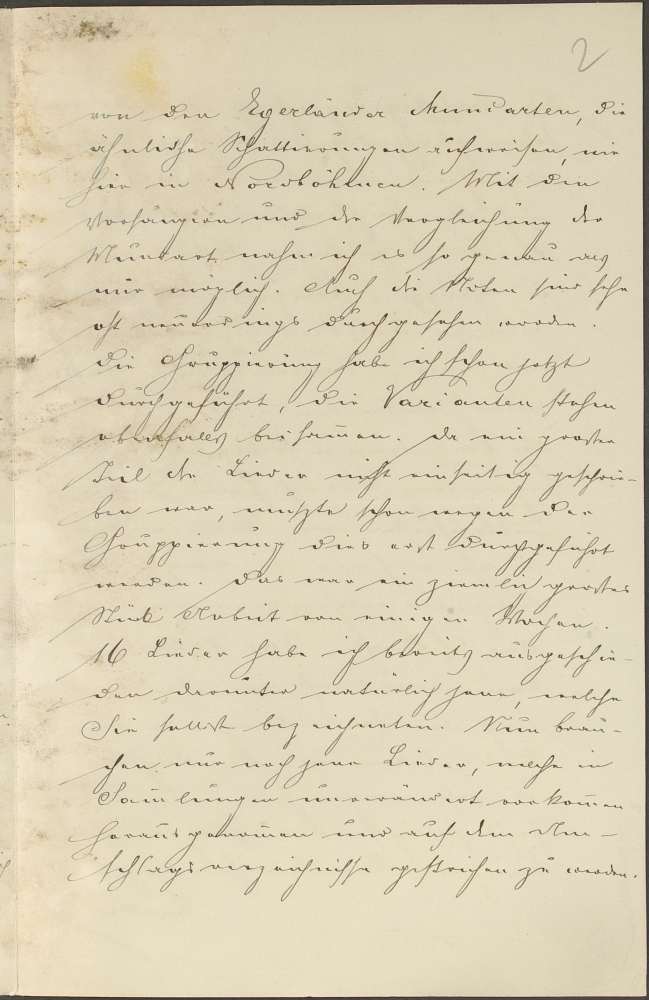 2
von den Egerländer Mundarten, die
ähnliche Schattierungen aufweisen, wie
hier in Nordböhmen. Mit den
und der Vergleichung der
Mundart nahm ich es so genau als
nur möglich. Auch die Noten sind sehr
oft neuerdings durchgesehen worden.
Die Gruppierung habe ich schon jetzt
durchgeführt, die Varianten stehen
ebenfalls beisammen. Da ein grosser
Teil der Lieder nicht einseitig geschrie-
ben war, muszte schon wegen der
Gruppierung dies erst durchgeführt
werden. Das war ein ziemlich grosses
Stück Arbeit von einigen Wochen.
16 Lieder habe ich bereits ausgeschie-
den darunter natürlich jene, welche
Sie selbst bezeichneten. Nun brau-
chen nur noch jene Lieder, welche in
Sammlungen unverändert vorkommen
herausgenommen und auf dem
verzeichnisse gestrichen zu werden.